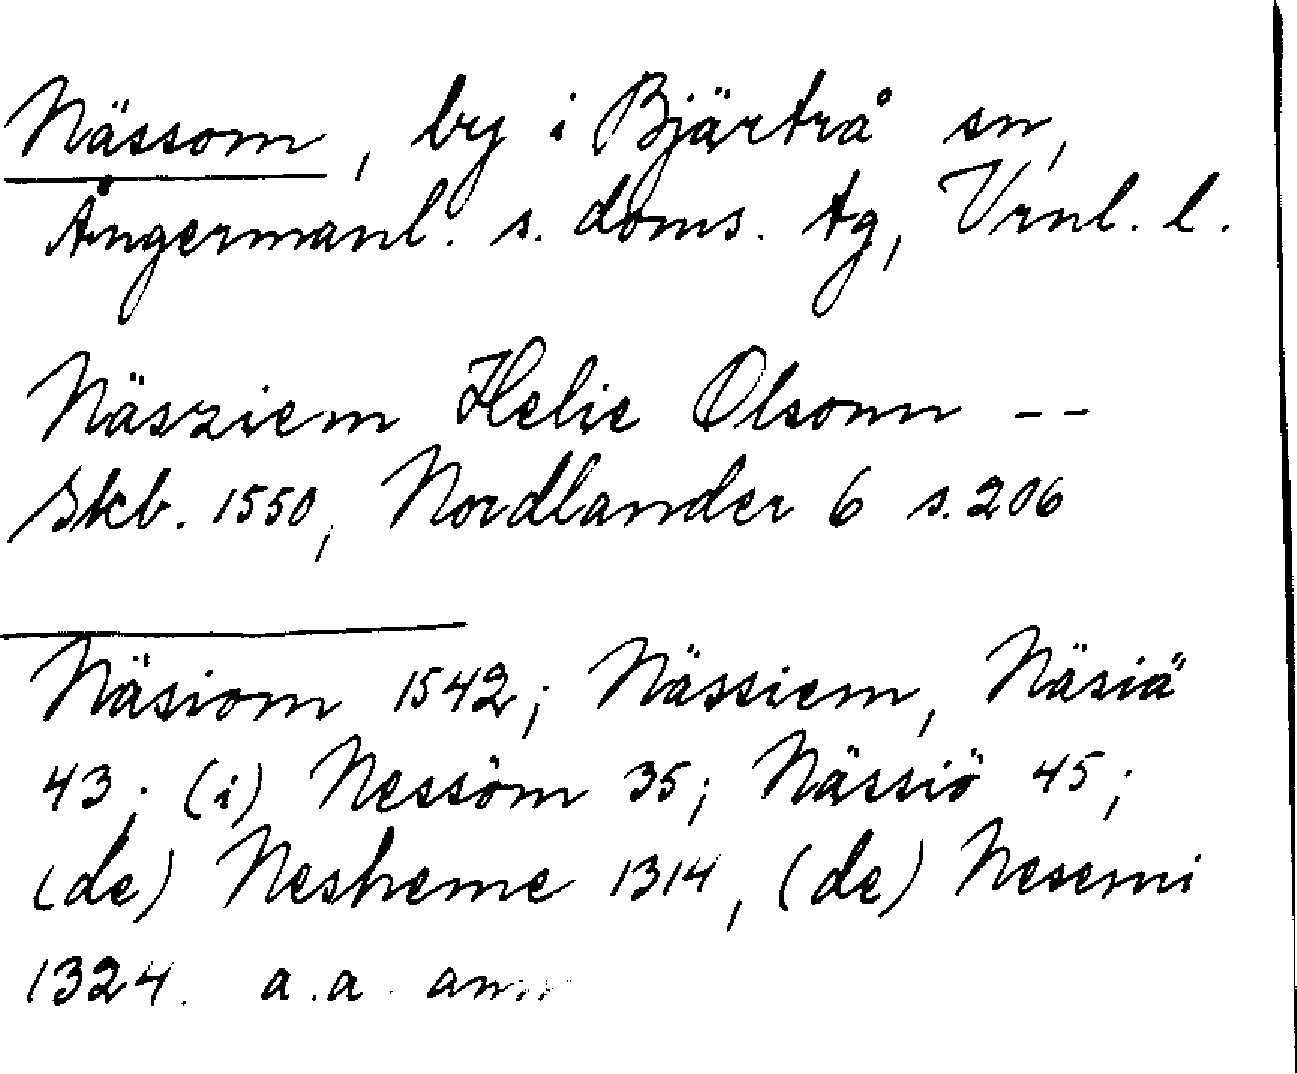 Nässom, by i Bjärtrå sn,
Ångermanl. s. doms. tg, Vrnl. l.
Näsziem Helie Olsonn --
Skb. 1550, Nordlander 6 s. 206
Näsiom 1542; Nässiem, Näsiä
43; (i) Nessöm 35; Nässiö 45;
(de) Nesheme 1314, (de) Nesemi
1324. a.a. anm